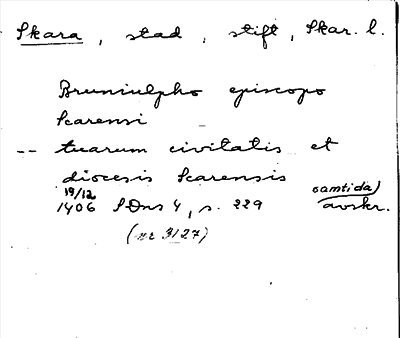 Skara, stad, stift, Skar. l.
Bruniulpho episcopo
Scarensi
-- tuarum civitatis et
diocesis Scarensis
19/12
1406 SDns 4, s. 229
samtida)
avskr.
(nr 3127)